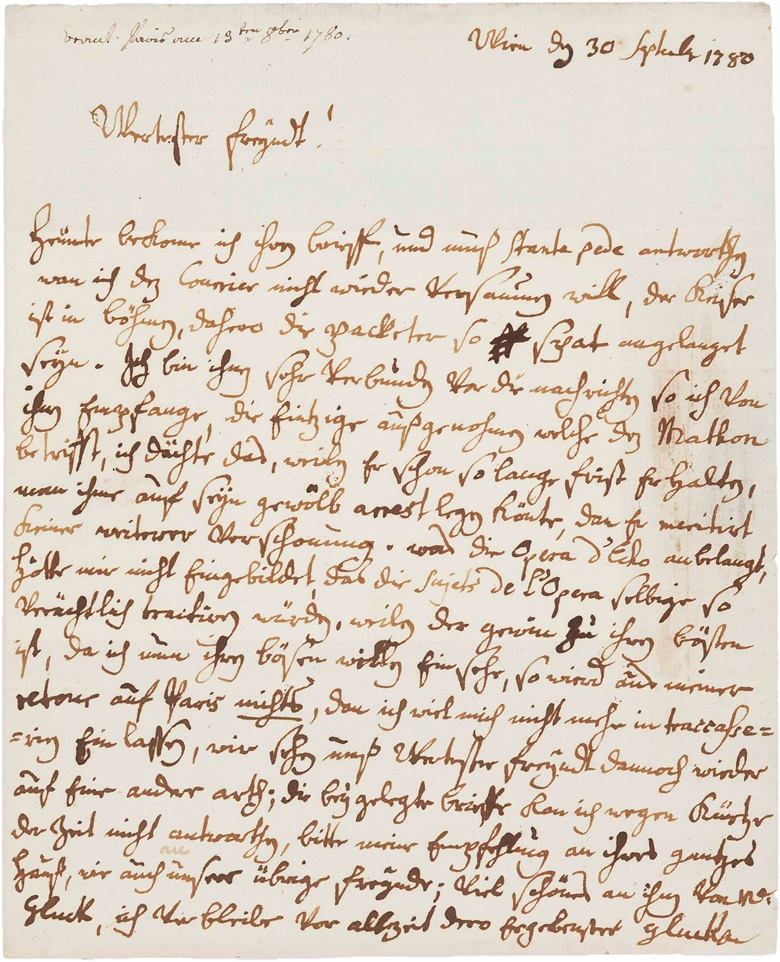 Paris 13ten 8bre 1780.
Wien den 30 Septembr 1780
Wertester freyndt!
Heünte bekome ich ihren brieff, und muß stante pede antworthen
wan ich den Courier nicht wieder Versaumen will, der Keiser
ist in böhmen, dahero die packeter so spat angelanget
seyn. Ich bin ihnen sehr Verbunden Vor die nachrichten so ich Von
ihnen Empfange, die Eintzige außgenohmen welche den Mathon
betrifft, ich dächte das, weilen Er schon so lange frist Erhalten,
man ihme auff seyn gewölb arrest legen könte, dan Er meritirt
keiner weiterer Verschonung. was die Opera d'Echo anbelangt,
hätte mir nicht Eingebildet, das die Sujets de l'Opera selbige so
Verächtlich traitiren würden, weilen der gewin zu ihren bösten
ist, da ich nun ihren bösen willen Einsehe, so wierd auß meiner
retour auff Paris nichts, dan ich wiel mich nicht mehr in traccasse=
=rien Einlassen, wir sehen unß Wertester freyndt dannoch wieder
auff Eine andere arth; die beygelegte brieffe kan ich wegen Kürtze
der Zeit nicht antworthen, bitte meine Empfehlung an ihres gantzes
Hauß, wie auch an unsere übrige freynde; Viel schönes an ihnen Von
Gluck, ich Verbleibe Vor allzeit dero Ergebenster Gluck